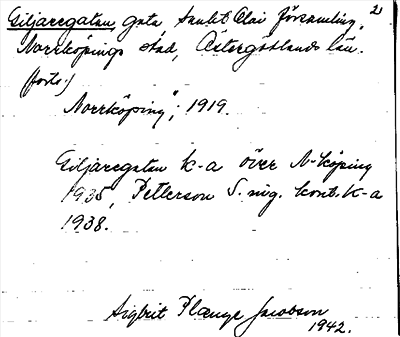 Giljaregatan, gata Sankt Olai församling, 2
Norrköpings stad, Östergötlands län.
(forts.)
"Norrköping", 1919.
Giljaregatan k-a över N-köping
1935, Petterson S. nig. kont. k-a
1938.
Sigbrit Plænge Jacobson
1942.